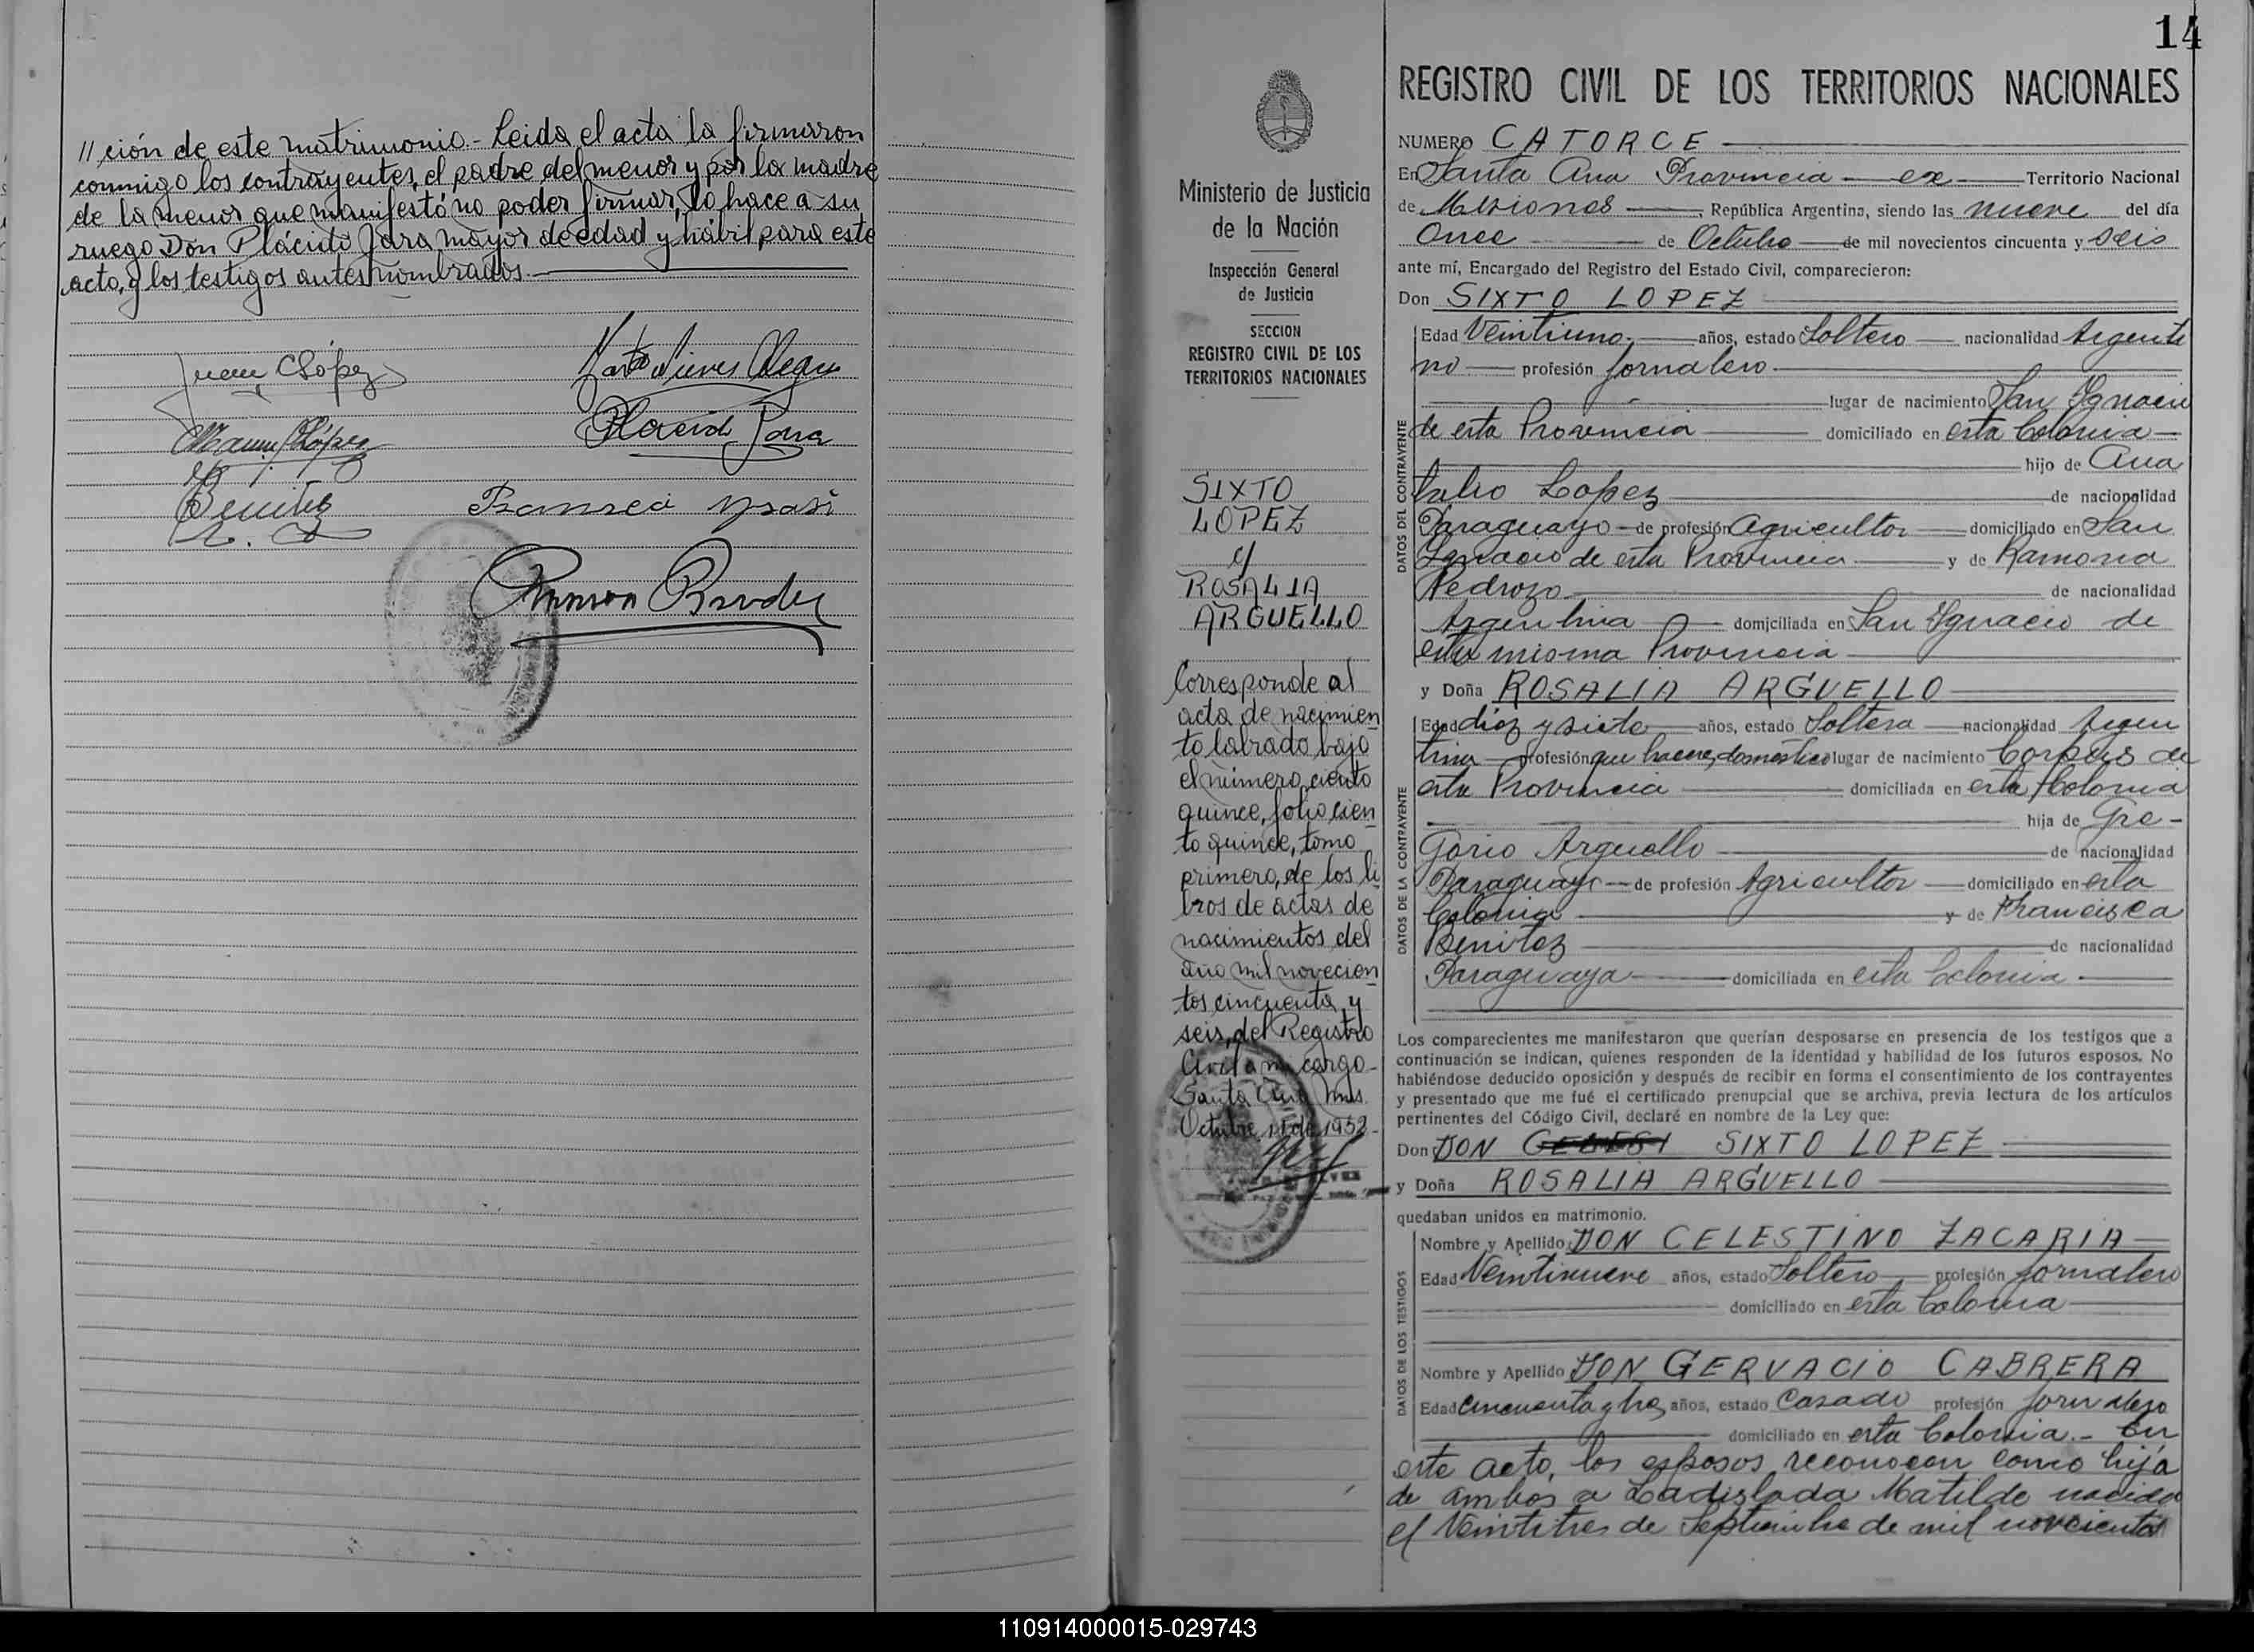 // ción de este matrimonio.- Leida el acta la firmaron
conmigo los contrayentes, el padre del menor y por la madre
de la menor que manifestó no poder firmar, lo hace a su
ruego Don Plácido Jara mayor de edad y hábil para este
acto, y los testigos antes nombrados.
Juan C López
Placido Jara
López
Benitez
Ramon
14
REGISTRO CIVIL DE LOS TERRITORIOS NACIONALES
Ministerio de Justicia
de la Nación
Inspección General
de Justicia
SECCION
REGISTRO CIVIL DE LOS
TERRITORIOS NACIONALES
SIXTO
LOPEZ
y
ROSALIA
ARGUELLO
Corresponde al
acta de nacimien
to labrado bajo
el número ciento
quince, folio cien
to quince, tomo
primero, de los li
bros de actas de
nacimientos del
año mil novecien
tos cincuenta y
seis, del Registro
Civil a mi cargo-
Santa Ana Mns.
Octubre 11 de
NUMERO CATORCE
En Santa Ana Provincia ex Territorio Nacional
de Misiones, República Argentina, siendo las nueve del día
Once de Octubre de mil novecientos cincuenta y seis
ante mí, Encargado del Registro del Estado Civil, comparecieron:
Don SIXTO LOPEZ
DATOS DEL CONTRAYENTE
Edad Veintiuno años, estado Soltero nacionalidad Argenti
no profesión Jornalero
lugar de nacimiento San Ignacio
de esta Provincia domiciliado en esta Colonia
hijo de Ana
Lopez de nacionalidad
Paraguayo de profesión Agricultor domiciliado en San
Ignacio de esta Provincia y de Ramona
Pedrozo de nacionalidad
Argentina domiciliada en San Ignacio de
esta misma Provincia
y Doña ROSALIA ARGUELLO
DATOS DE LA CONTRAYENTE
Edad diez y siete años, estado Soltera nacionalidad Argen
tina profesión que haceres domestico lugar de nacimiento Corpus de
esta Provincia domiciliada en esta Colonia
hija de Gre-
gorio Arguello de nacionalidad
Paraguayo de profesión Agricultor domiciliado en esta
Colonia y de Francisca
Benitez de nacionalidad
Paraguaya domiciliada en esta Colonia
Los comparecientes me manifestaron que querían desposarse en presencia de los testigos que a
continuación se indican, quienes responden de la identidad y habilidad de los futuros esposos. No
habiéndose deducido oposición y después de recibir en forma el consentimiento de los contrayentes
y presentado que me fué el certificado prenupcial que se archiva, previa lectura de los artículos
pertinentes del Código Civil, declaré en nombre de la Ley que:
Don DON SIXTO LOPEZ
y Doña ROSALIA ARGUELLO
quedaban unidos en matrimonio.
DATOS DE LOS TESTIGOS
Nombre y Apellido DON CELESTINO ZACARIA
Edad Veintinueve años, estado Soltero profesión Jornalero
domiciliado en esta Colonia
Nombre y Apellido DON GERVACIO CABRERA
Edad Cincuenta y tres años, estado Casado profesión Jornalero
domiciliado en esta Colonia.- En
este acto, los esposos reconocen como hija
de ambos a Ladislada Matilde nacida
el Veintitres de Septiembre de mil novecientos
110914000015-029743